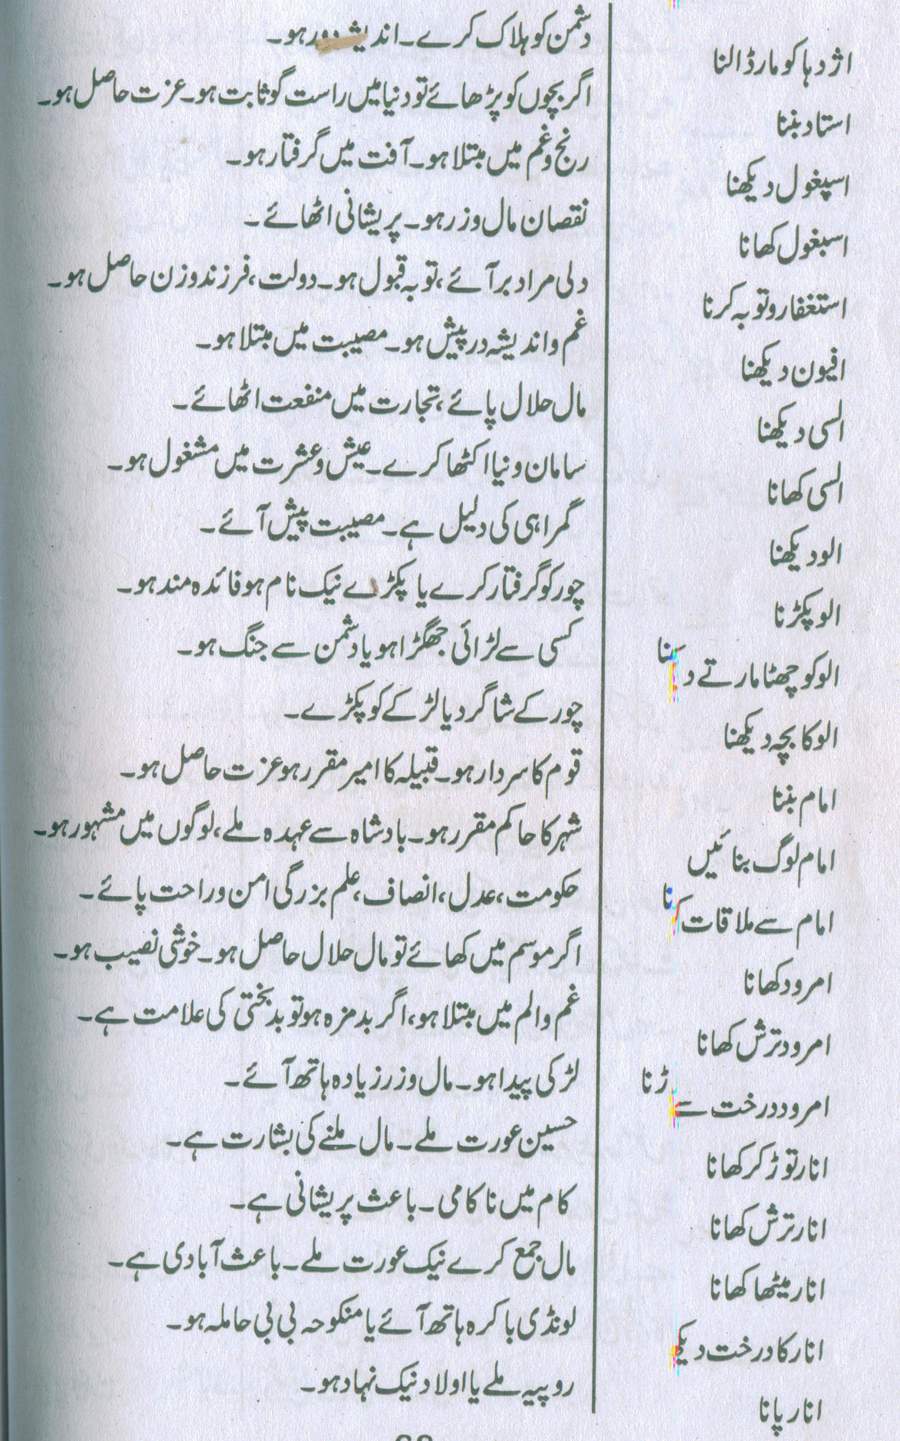 اژدہا کو مار ڈالنا دشمن کو ہلاک کرے۔ اندیشہ دور ہو۔
استاد بننا اگر بچوں کو پڑھائے تو دنیا میں راست گو ثابت ہو۔ عزت حاصل ہو۔
اسپغول دیکھنا رنج و غم میں مبتلا ہو۔ آفت میں گرفتار ہو۔
اسبغول کھانا نقصان مال و زر ہو۔ پریشانی اٹھائے۔
استغفار و توبہ کرنا دلی مراد بر آئے، توبہ قبول ہو۔ دولت، فرزند و زن حاصل ہو۔
افیون دیکھنا غم و اندیشہ در پیش ہو۔ مصیبت میں مبتلا ہو۔
السی دیکھنا مال حلال پائے، تجارت میں منفعت اٹھائے۔
السی کھانا سامان دنیا اکٹھا کرے۔ عیش و عشرت میں مشغول ہو۔
الو دیکھنا گمراہی کی دلیل ہے۔ مصیبت پیش آئے۔
الو پکڑنا چور کو گرفتار کرے یا پکڑے نیک نام ہو فائدہ مند ہو۔
الو کو جھپٹا مارتے کسی سے لڑائی جھگڑا ہو یا دشمن سے جنگ ہو۔
الو کا بچہ دیکھنا چور کے شاگرد یا لڑکے کو پکڑے۔
امام بننا قوم کا سردار ہو۔ قبیلہ کا امیر مقرر ہو عزت حاصل ہو۔
امام لوگ بنائیں شہر کا حاکم مقرر ہو۔ بادشاہ سے عہدہ ملے، لوگوں میں مشہور ہو۔
امام سے ملاقات کرنا حکومت، عدل، انصاف، علم بزرگی امن و راحت پائے۔
امرود کھانا اگر موسم میں کھائے تو مال حلال حاصل ہو۔ خوشی نصیب ہو۔
امرود ترش کھانا غم و الم میں مبتلا ہو، اگر بدمزہ ہو تو بدبختی کی علامت ہے۔
امرود درخت سے لڑکی پیدا ہو۔ مال و زر زیادہ ہاتھ آئے۔
انار توڑ کر کھانا حسین عورت ملے۔ مال ملنے کی بشارت ہے۔
انار ترش کھانا کام میں ناکامی۔ باعث پریشانی ہے۔
انار میٹھا کھانا مال جمع کرے نیک عورت ملے۔ باعث آبادی ہے۔
انار کا درخت لونڈی باکرہ ہاتھ آئے یا منکوحہ بی بی حاملہ ہو۔
انار پانا روپیہ ملے یا اولاد نیک نہاد ہو۔